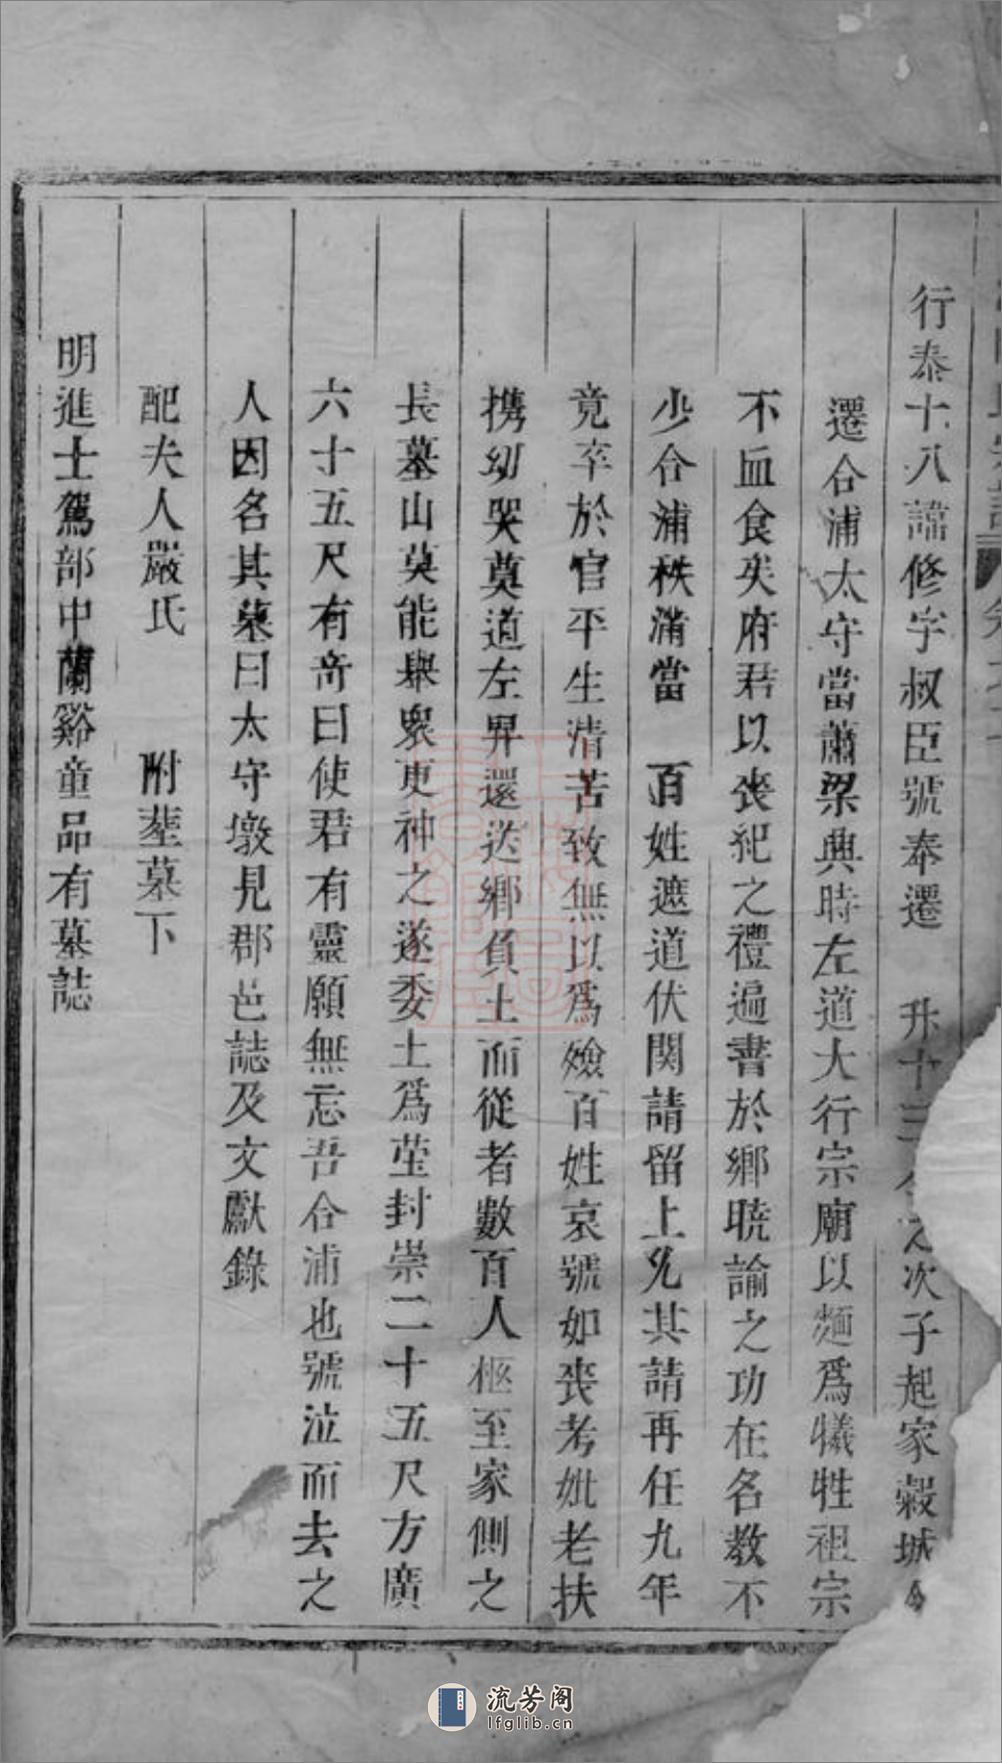 行泰十八諱修字叔臣號奉遷 升十三公之次子起家穀城令
遷合浦太守當蕭梁興時左道大行宗廟以麵爲犧牲祖宗
不血食矣府君以喪紀之禮遍書於鄉曉諭之功在名教不
少合浦秩滿當 百姓遮道伏関請留上允其請再任九年
竟卒於官平生清苦致無以爲殮百姓哀號如喪考妣老扶
携幼哭奠道左舁還送鄉負土而從者數百人柩至家側之
長墓山莫能舉衆更神之遂委土爲塋封崇二十五尺方廣
六十五尺有奇曰使君有靈願無忘吾合浦也號泣而去之
人因名其墓曰太守墩見郡邑誌及文獻錄
配夫人嚴氏 附塟墓下
明進士駕部中蘭谿童品有墓誌
流芳阁
lfglib.cn